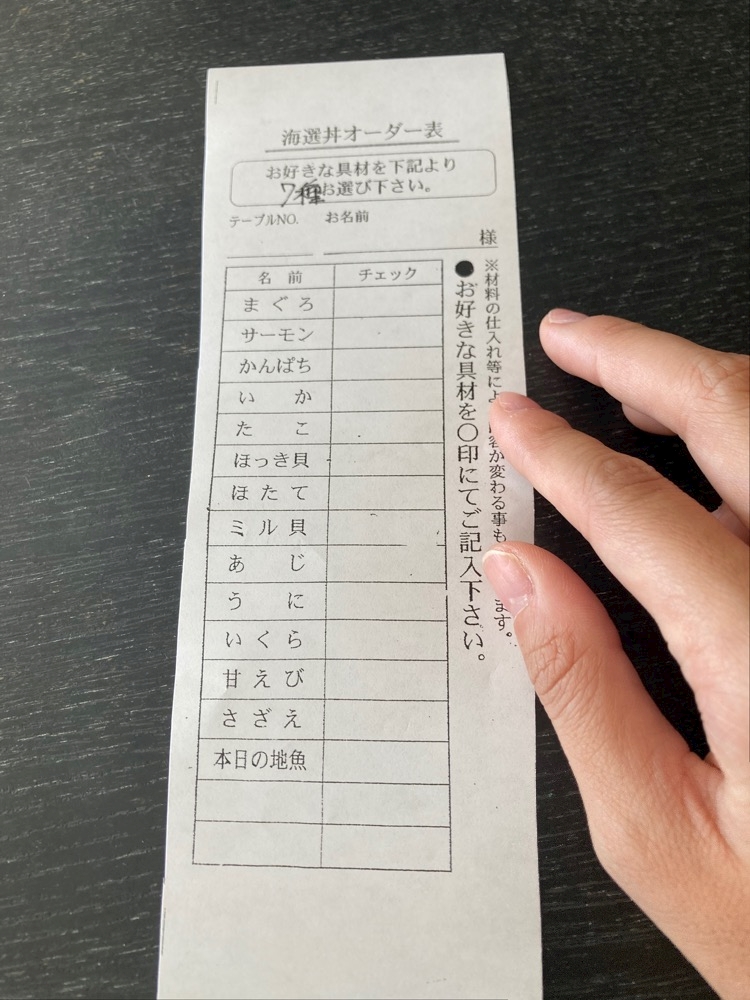 海選丼オーダー表
お好きな具材を下記より
7種お選び下さい。
テーブルNO. お名前
様
名前 チェック
まぐろ
サーモン
かんぱち
いか
たこ
ほっき貝
ほたて
ミル貝
あじ
うに
いくら
甘えび
さざえ
本日の地魚
※材料の仕入れ等によ 容が変わる事も ます。
●お好きな具材を〇印にてご記入下さい。